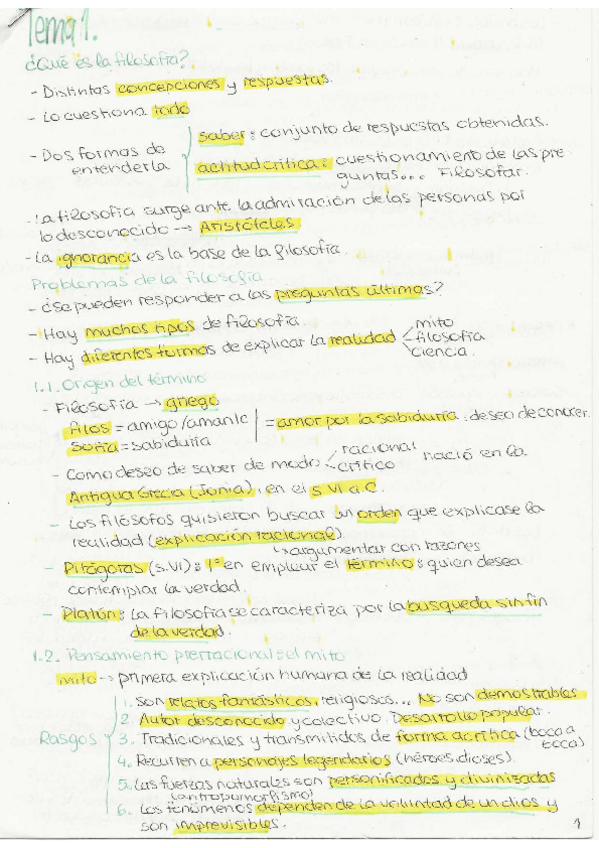 Tema 1.
¿Qué es la filosofía?
- Distintas concepciones y respuestas.
- Lo cuestiona todo
- Dos formas de entenderla
saber: conjunto de respuestas obtenidas.
actitud crítica: cuestionamiento de las pre-
guntas... Filosofar.
- La filosofía surge ante la admiración de las personas por
lo desconocido --> Aristóteles
- La ignorancia es la base de la filosofía.
Problemas de la filosofía
- ¿Se pueden responder a las preguntas últimas?
- Hay muchos tipos de filosofía
- Hay diferentes formas de explicar la realidad
mito
filosofía
ciencia.
1.1. Origen del término
- Filosofía → griego
Filos = amigo/amante
Sofía = sabiduría
= amor por la sabiduría: deseo de conocer.
- Como deseo de saber de modo
racional
crítico
nació en la
Antigua Grecia (Jonia), en el s. VI a.C.
- Los filósofos quisieron buscar un orden que explicase la
realidad (explicación racional)
argumentar con razones
- Pitágoras (s.VI): 1º en emplear el término: quien desea
contemplar la verdad.
- Platón: la filosofía se caracteriza por la busqueda sin fin
de la verdad.
1.2. Pensamiento prerracional: el mito
mito -> primera explicación humana de la realidad
Rasgos
1. Son relatos fantásticos, religiosos... No son demostrables
2. Autor desconocido y colectivo. Desarrollo popular.
3. Tradicionales y transmitidos de forma acrítica (boca a
boca)
4. Recurren a personajes legendarios (héroes, dioses).
5. Las fuerzas naturales son personificadas y divinizadas
(antropomorfismo)
6. Los fenómenos dependen de la voluntad de un dios y
son imprevisibles.
1